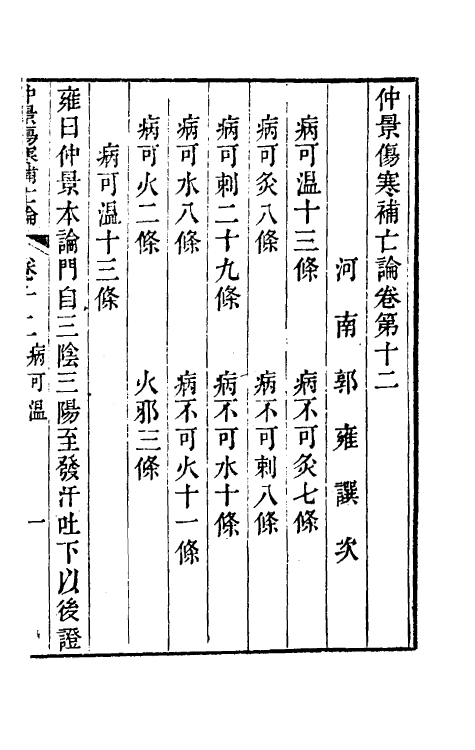 仲景傷寒補亡論卷第十二
河南郭雍譔次
病可温十三條　病不可灸七條
病可灸八條　病不可刺八條
病可刺二十九條　病不可水十條
病可水八條　病不可火十一條
病可火二條　火邪三條
病可温十三條
雍曰仲景本論門自三陰三陽至發汗吐下以後證
仲景傷寒補亡論　卷十二　病可温　一